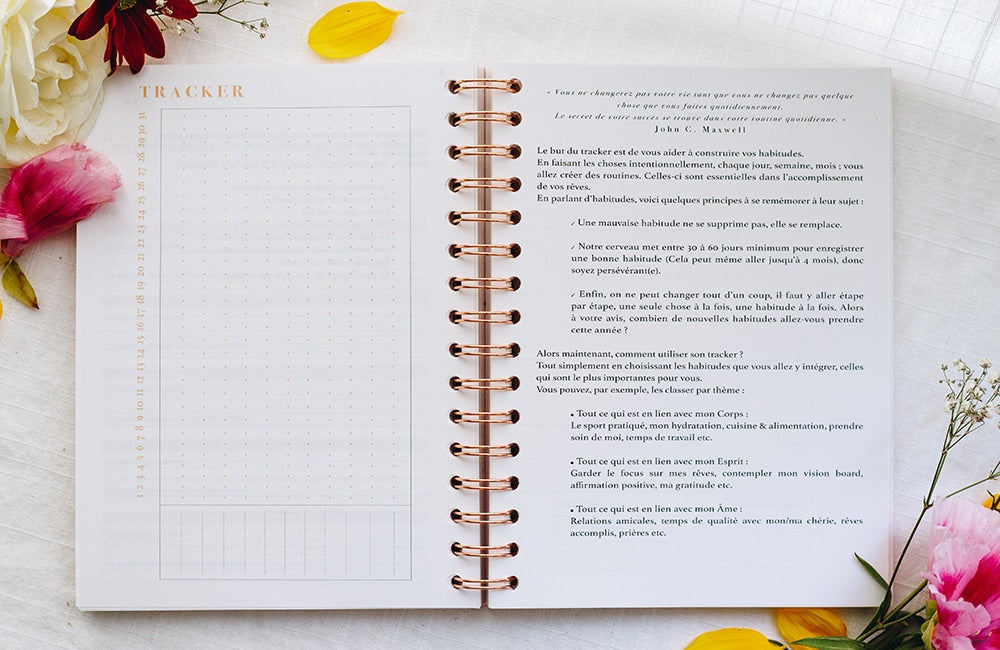 TRACKER
1 2 3 4 5 6 7 8 9 10 11 12 13 14 15 16 17 18 19 20 21 22 23 24 25 26 27 28 29 30 31
« Vous ne changerez pas votre vie tant que vous ne changez pas quelque
chose que vous faites quotidiennement.
Le secret de votre succès se trouve dans votre routine quotidienne. »
John C. Maxwell
Le but du tracker est de vous aider à construire vos habitudes.
En faisant les choses intentionnellement, chaque jour, semaine, mois ; vous
allez créer des routines. Celles-ci sont essentielles dans l'accomplissement
de vos rêves.
En parlant d'habitudes, voici quelques principes à se remémorer à leur sujet :
✓ Une mauvaise habitude ne se supprime pas, elle se remplace.
✓ Notre cerveau met entre 30 à 60 jours minimum pour enregistrer
une bonne habitude (Cela peut même aller jusqu'à 4 mois), donc
soyez persévérant(e).
✓ Enfin, on ne peut changer tout d'un coup, il faut y aller étape
par étape, une seule chose à la fois, une habitude à la fois. Alors
à votre avis, combien de nouvelles habitudes allez-vous prendre
cette année ?
Alors maintenant, comment utiliser son tracker ?
Tout simplement en choisissant les habitudes que vous allez y intégrer, celles
qui sont le plus importantes pour vous.
Vous pouvez, par exemple, les classer par thème :
• Tout ce qui est en lien avec mon Corps :
Le sport pratiqué, mon hydratation, cuisine & alimentation, prendre
soin de moi, temps de travail etc.
• Tout ce qui est en lien avec mon Esprit :
Garder le focus sur mes rêves, contempler mon vision board,
affirmation positive, ma gratitude etc.
• Tout ce qui est en lien avec mon Âme :
Relations amicales, temps de qualité avec mon/ma chérie, rêves
accomplis, prières etc.